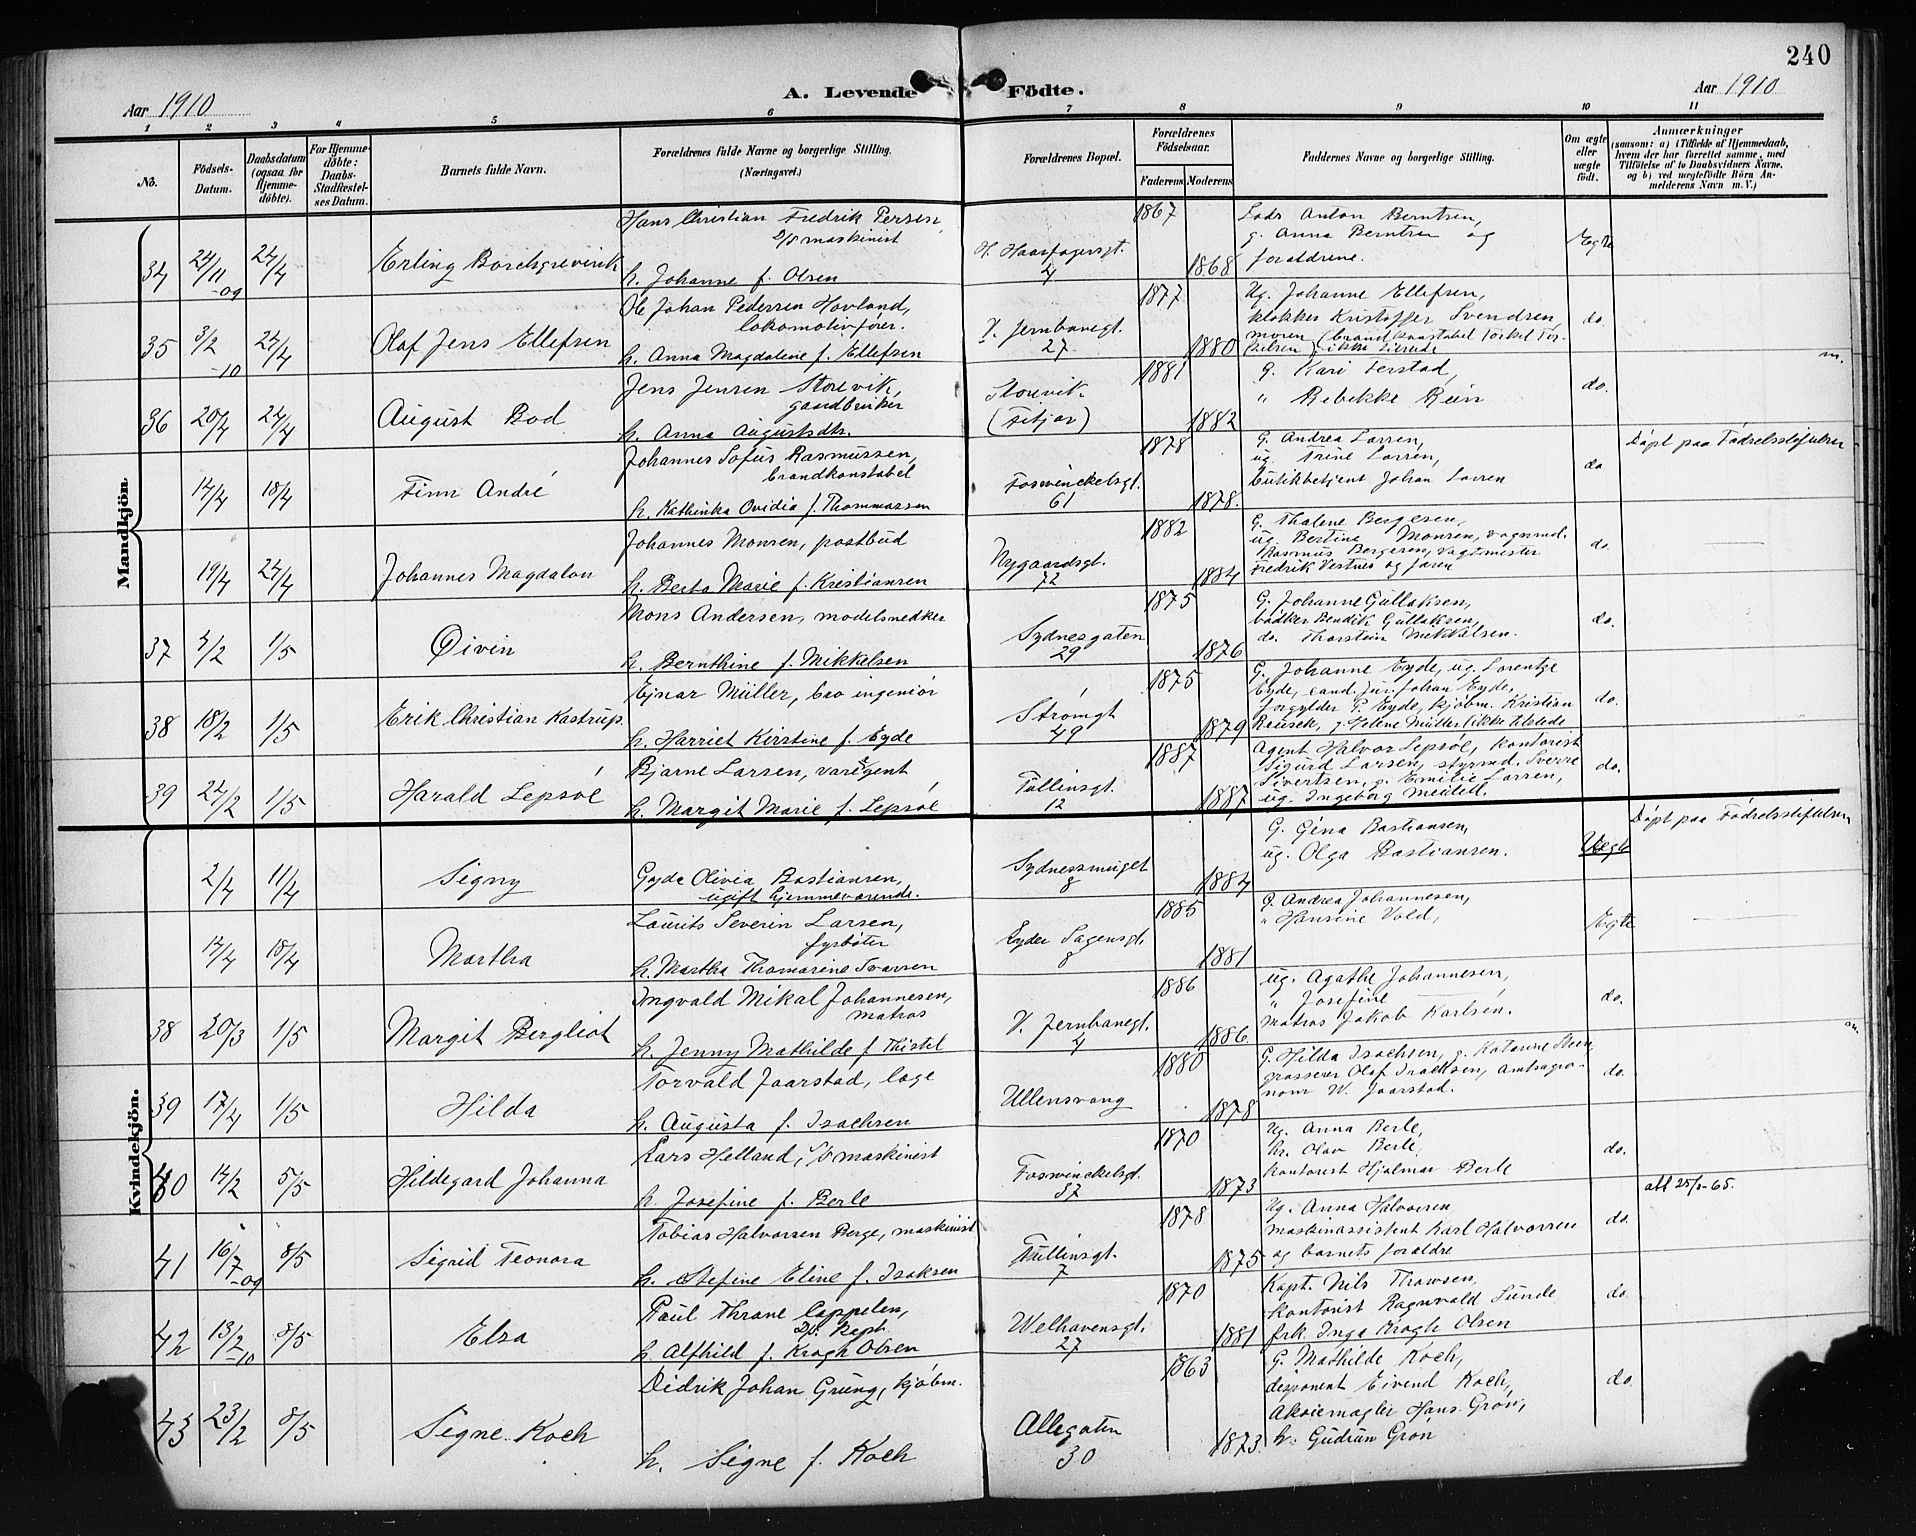 240
Aar 1910
A. Levende Födte.
Aar 1910
1 2 3 4 5 6 7 8 9 10 11
No.
Födsels-Datum.
Daabsdatum (ogsaa for Hjemme-döbte).
For Hjemme-döbte: Daabs-Stadfæstel-ses Datum.
Barnets fulde Navn.
Forældrenes fulde Navne og borgerlige Stilling.
(Næringsvei.)
Forældrenes Bopæl.
Forældrenes Födselsaar.
Faderens. Moderens.
Faddernes Navne og borgerlige Stilling.
Om ægte eller uægte födt.
Anmærkninger
(saasom: a) i Tilfælde af Hjemmedaab, hvem der har forrettet samme, med Tilföielse af to Daabsvidners Navne. og b) ved uægtefödte Börn An-melderens Navn m. V.)
Mandkjön.
34 24/11 -09 24/4 Erling Borchgrevink
Hans Christian Fredrik Persen,
D/S maskinist
h. Johanne f. Olsen
H. Haarfagersgt. 4
1867 1868
Lods Anton Berntsen,
g. Anna Berntsen og
forældrene.
Ægte
35 3/2 -10 24/4 Olaf Jens Ellefsen
Ole Johan Pedersen Hovland,
lokomotivfører.
h. Anna Magdalene f. Ellefsen
V. Jernbanegt. 27
1877 1880
Ug. Johanne Ellefsen,
klokker Kristoffer Svendsen,
moren (brandkonstabel Torkel Tor-
kelsen ikke tilstede
do.
m.
36 20/4 24/4 August Bod
Jens Jensen Storevik,
gaardbruker
h. Anna Augustsdtr.
Storevik (Fitjar)
1881 1882
g. Kari Ferstad,
" Rebekke Rein
do.
17/4 18/4 Finn André
Johannes Sofus Rasmussen,
brandkonstabel
h. Kathinka Ovidia f. Thommassen
Fosswinckelsgt. 61
1878 1878.
G. Andrea Larsen,
ug. Trine Larsen,
butikbetjent Johan Larsen
do
Døpt paa Fødselsstiftelsen
19/4 24/4 Johannes Magdalon
Johannes Monsen, postbud
h. Berta Marie f. Kristiansen
Nygaardsgt. 72
1882 1884
G. Thalene Bergesen,
ug. Bertine Monsen, vognmd.
Rasmus Bergesen, vagtmester
Fredrik Vestnes og faren
do.
37 4/2 1/5 Øivin
Mons Andersen, modelsnedker
h. Bernthine f. Mikkelsen
Sydnesgaten 29
1875 1876
G. Johanne Gullaksen,
bødker Bendik Gullaksen,
do. Thorstein Mikkelsen.
do.
38 18/2 1/5 Erik Christian Kastrup
Ejnar Müller, bro ingeniør
h. Harriet Kirstine f. Eyde
Strømgt 49
1875 1879
G. Johanne Eyde, ug. Lorentze
Eyde, cand. jur. Johan Eyde,
forgylder P. Eyde, kjøbm. Kristian
Reusch, g Helene Müller (ikke tilstede
do.
39 24/2 1/5 Harald Lepsøe
Bjarne Larsen, vareagent
h. Margit Marie f. Lepsøe
Tullinsgt. 12
1887 1887
Agent Halvor Lepsøe, kontorist
Sigurd Larsen, styrmd. Sverre
Sivertsen, g. Emilie Larsen,
ug. Ingeborg Meidell.
do.
Kvindekjön.
2/4 11/4 Signy
Gyda Olivia Bastiansen,
ugift hjemmeværende.
Sydnessmuget 8
1884
G. Gina Bastiansen,
ug. Olga Bastiansen.
Uegte
Døpt paa Fødselsstiftelsen
14/4 18/4 Martha
Laurits Severin Larsen,
fyrbøter
h. Martha Thomasine Svarren
Eyder Sagensgt. 8
1885 1881
G. Andrea Johannesen,
" Hansine Vold,
Ægte
38 20/3 1/5 Margit Bergliot
Ingvald Mikal Johannesen,
matros
h. Jenny Mathilde f Thistel
V. Jernbanegt. 4
1886 1886
ug. Agathe Johannesen,
" Josefine
matros Jakob Karlsen.
do.
39 17/4 1/5 Hilda
Torvald Jaarstad, læge
h. Augusta f. Isachsen
Ullensvang
1880 1878
G. Hilda Isachsen, g. Katarine Steen,
grosserer Olaf Isachsen, Amtsagro-
nom W. Jaarstad.
do.
40 14/2 5/5 Hildegard Johanna
Lars Helland, D/S maskinist
h. Josefine f. Berle
Fosswinckelsgt. 37
1870 1873
Ug. Anna Berle,
hr. Olav Berle,
kontorist Hjalmar Berle
do.
att 25/1-65.
41 16/7 -09 8/5 Sigrid Teonora
Tobias Halvorsen Berge, maskinist
h. Stefine Eline f. Isaksen
Tullinsgt. 7
1878 1875
Ug. Anna Halvorsen
maskinassistent Karl Halvorsen
og barnets forældre
do.
42 13/2 -10 8/5 Elsa
Paul Thrane Cappelen,
D/S. Kapt.
h. Alfhild f. Krogh Olsen
Welhavensgt. 27
1870 1881
Kapt. Nils Thowsen,
kontorist Ragnvald Sunde
frk. Inga Krogh Olsen
do.
43 23/2 8/5 Signe Koch
Didrik Johan Grung, kjøbm.
h. Signe f. Koch
Allégaten 30
1863 1873
G. Mathilde Koch,
disponent Eivend Koch,
Aksiemægler Hans Grøn,
h. Gudrun Grøn
do.